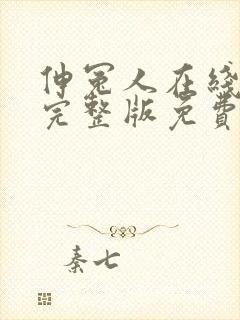 伸冤人在线
完整版免費
秦七